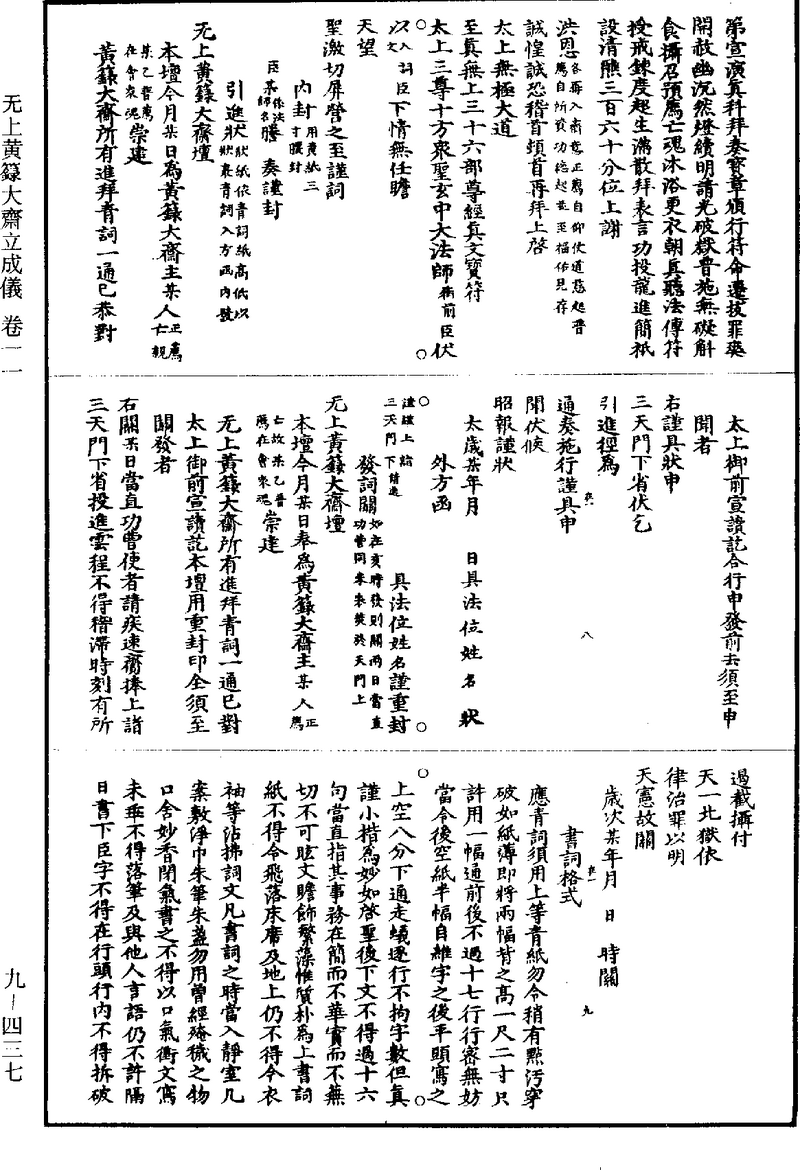 第宣演真科拜奏寳章頒行符命遷拔罪爽
開赦幽沉然燈續明請光破獄普施無礙斛
食攝召預薦亡魂沐浴更衣朝真聽法傳符
授戒鍊度超生滿散拜表言功投龍進簡祇
設清醮三百六十分位上謝
洪恩各再入齋意正薦自仰使道慈起普薦自所資功德起並至福佑見存
誠惶誠恐稽首頓首再拜上啓
太上無極大道
至真無上三十六部尊經真文寳符
太上三尊十方衆聖玄中大法師衙前臣伏
以入詞文臣下情無任瞻
天望
聖激切屏營之至謹詞
内封用黄紙三寸腰封
臣某係法師名謄奏謹封
引進狀狀紙依青詞紙高低以狀裹青詞入方函内號
无上黄籙大齋壇
本壇今月某日為黄籙大齋主某人正薦亡親
某乙普薦在會衆魂崇建
黄籙大齋所有進拜青詞一通已恭對
太上御前宣讀訖合行申發前去須至申
聞者
右謹具狀申
三天門下省伏乞
引進徑為
通奏施行謹具申
聞伏候
昭報謹狀
太歲某年月 日具法位姓名 狀
外方函
謹謹上詣三天門下請進 具法位姓名謹重封
發詞關如在亥時發則關兩日當直功曹同來來賫於天門上
无上黄籙大齋壇
本壇今月某日奉為黄籙大齋主某人正薦
亡故某乙普薦在會衆魂崇建
无上黄籙大齋所有進拜青詞一通已對
太上御前宣讀訖本壇用重封印全須至
關發者
右關某日當直功曹使者請疾速齎捧上詣
三天門下省投進雲程不得稽滯時刻有所
八
過截攝付
天一北獄依
律治罪以明
天憲故關
歲次某年月 日 時關
書詞格式
應青詞須用上等青紙勿令稍有點污穿
破如紙薄即將兩幅背之高一尺二寸只
許用一幅通前後不過十七行行密無妨
當令後空紙半幅自維字之後平頭寫之
上空八分下通走蟻逐行不拘字數但真
謹小楷為妙如啓聖後下文不得過十六
句當直指其事務在簡而不華實而不蕪
切不可眩文贍飾繁藻惟質朴為上書詞
紙不得令飛落床席及地上仍不得令衣
袖等沾拂詞文凡書詞之時當入靜室几
案敷淨巾朱筆朱盞勿用曾經殗穢之物
口含妙香閉氣書之不得以口氣衝文寫
未垂不得落筆及與他人言語仍不許隔
日書下臣字不得在行頭行内不得拆破
九
无上黄籙大齋立成儀 卷一一
九—四三七